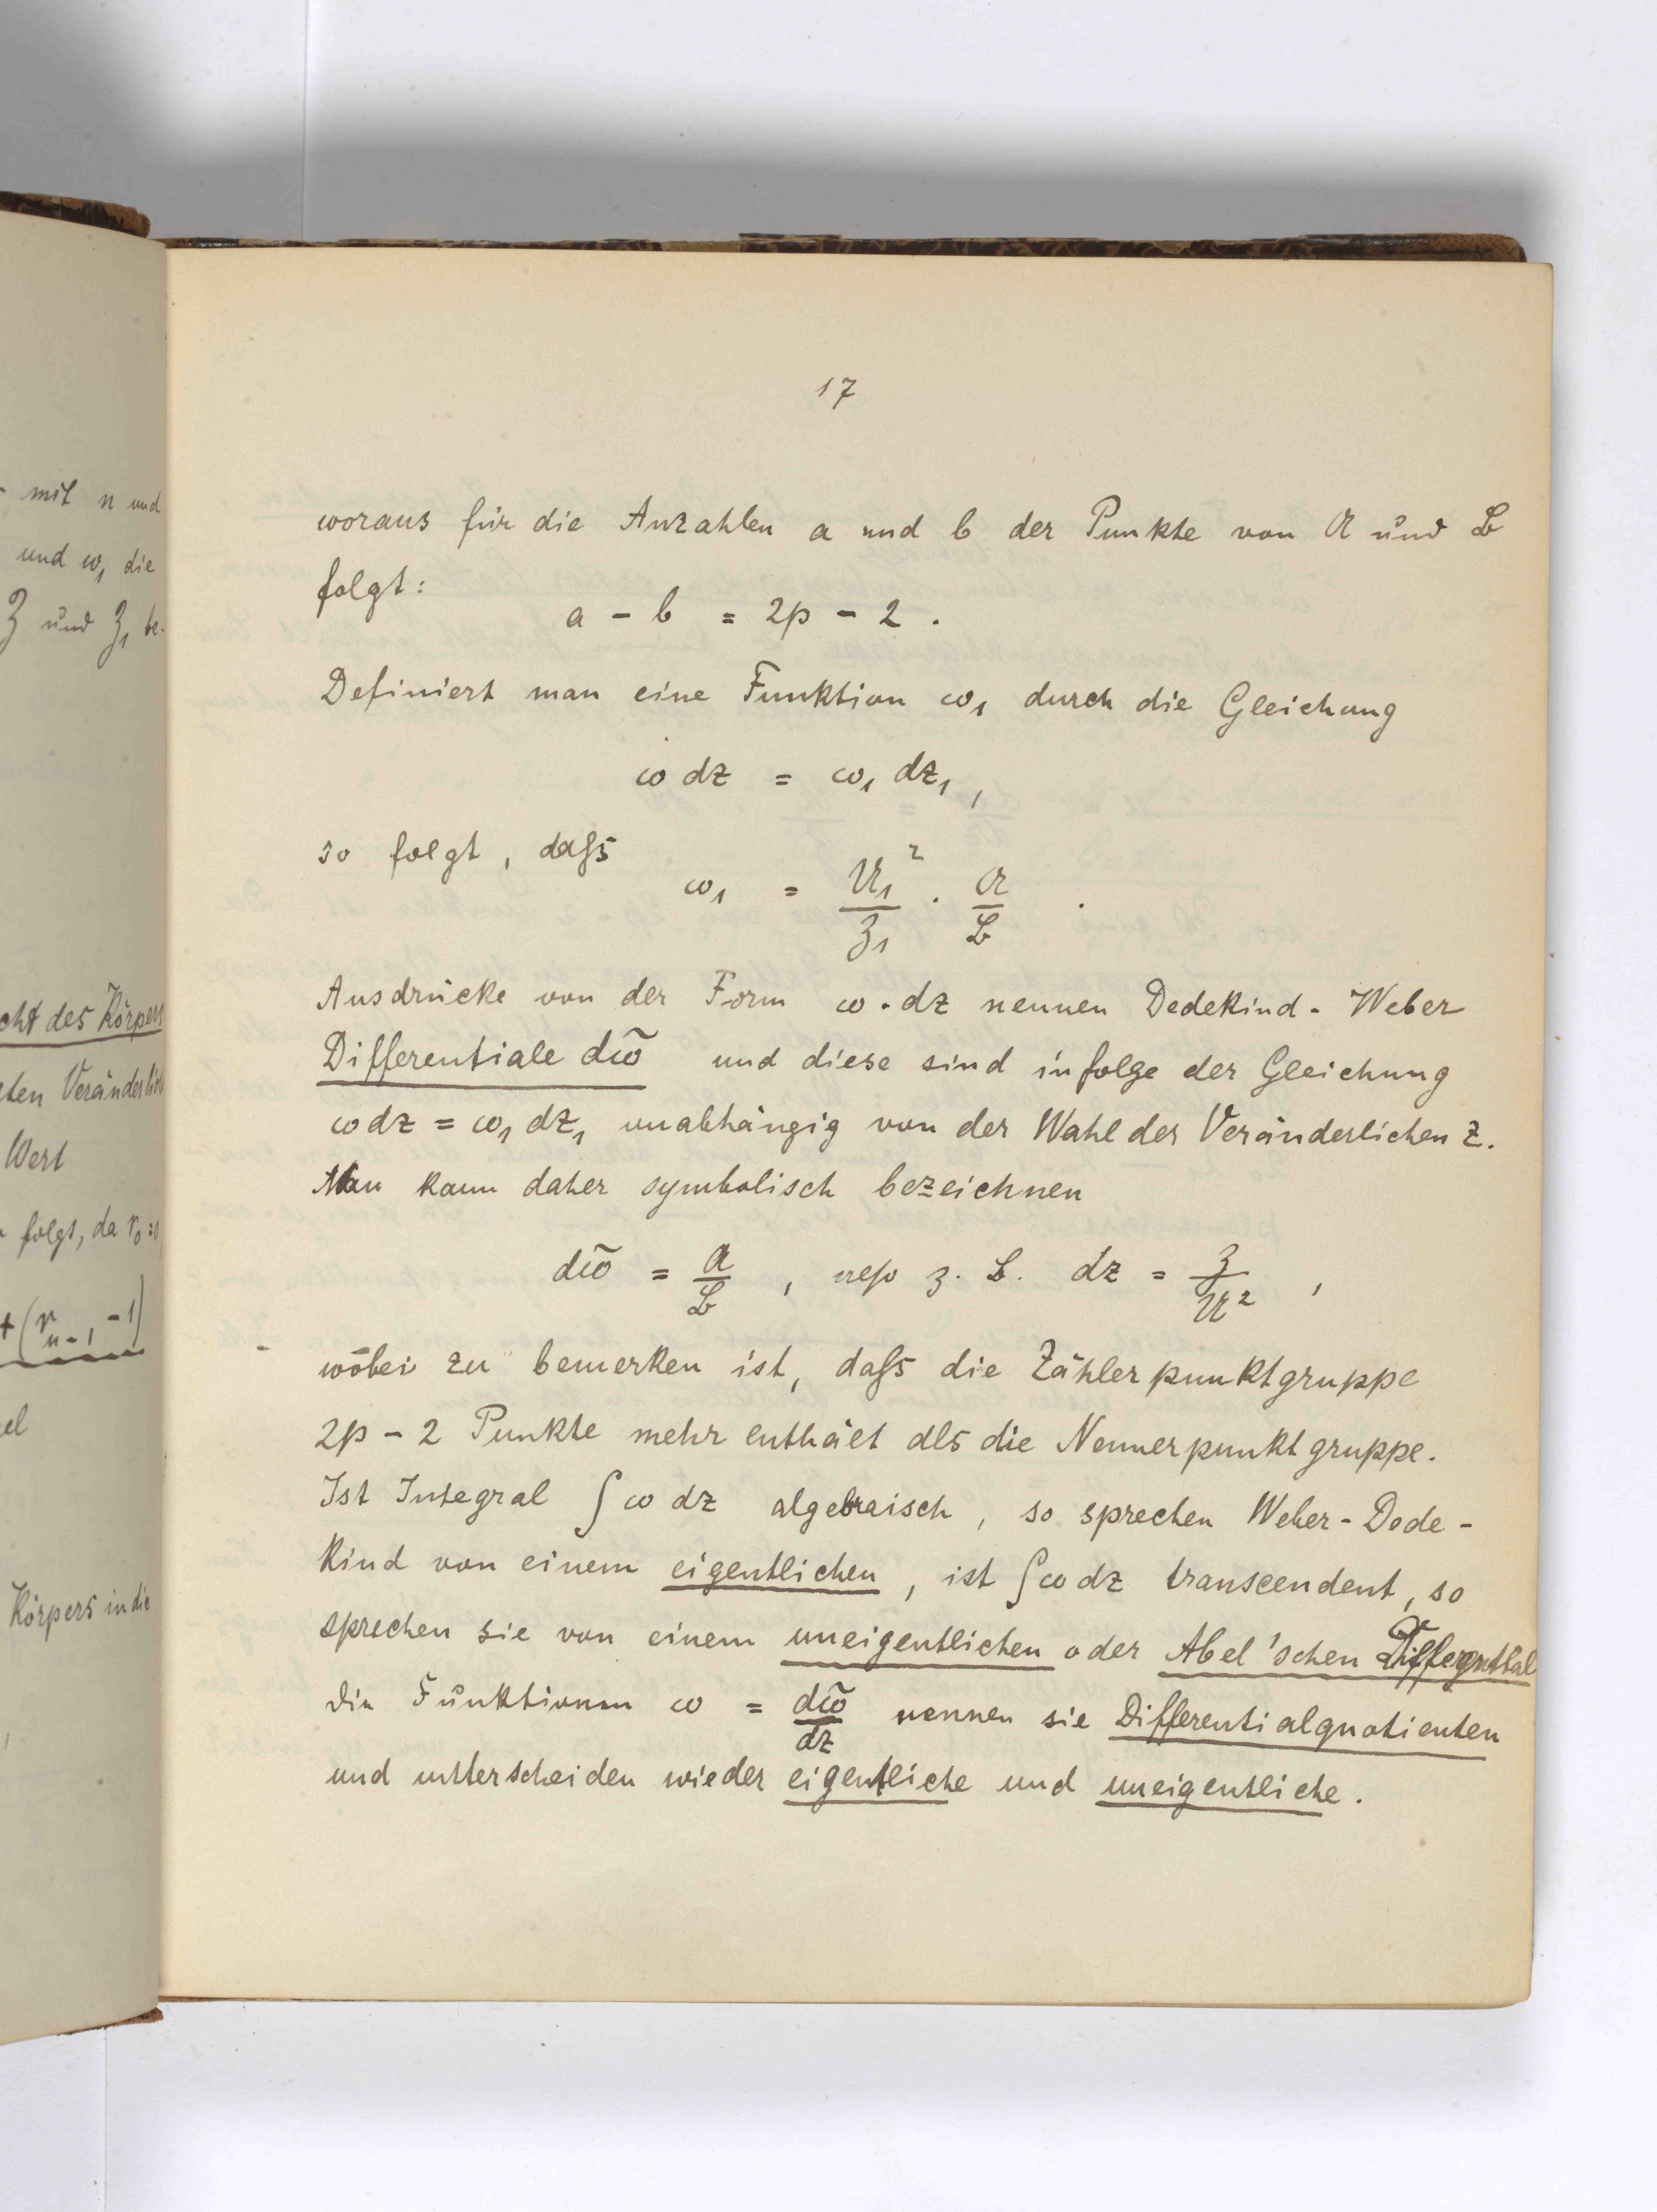 - mit n und
und ω₁ die
ℨ und ℨ₁ be-
cht des Körpers
ten Veränderlich
Wert
folgt, da r₀ =
+ (r_{n-1} - 1)
el
Körpers in die
17
woraus für die Anzahlen a und b der Punkte von 𝔄 und 𝔅
folgt:
a - b = 2p - 2 .
Definiert man eine Funktion ω₁ durch die Gleichung
ω dz = ω₁ dz₁ ,
so folgt, daſs
ω₁ = 𝔘₁²/ℨ₁ · 𝔄/𝔅 .
Ausdrücke von der Form ω · dz nennen Dedekind - Weber
Differentiale dω̃ und diese sind infolge der Gleichung
ω dz = ω₁ dz₁ unabhängig von der Wahl der Veränderlichen z.
Man kann daher symbolisch bezeichnen
dω̃ = 𝔄/𝔅 , also z. B. dz = ℨ/𝔘² ,
wobei zu bemerken ist, daſs die Zählerpunktgruppe
2p - 2 Punkte mehr enthält als die Nennerpunktgruppe.
Ist Integral ∫ ω dz algebraisch, so sprechen Weber - Dede-
kind von einem eigentlichen, ist ∫ ω dz transcendent, so
sprechen sie von einem uneigentlichen oder Abel'schen Differential
Die Funktionen ω = dω̃/dz nennen sie Differentialquotienten
und unterscheiden wieder eigentliche und uneigentliche.